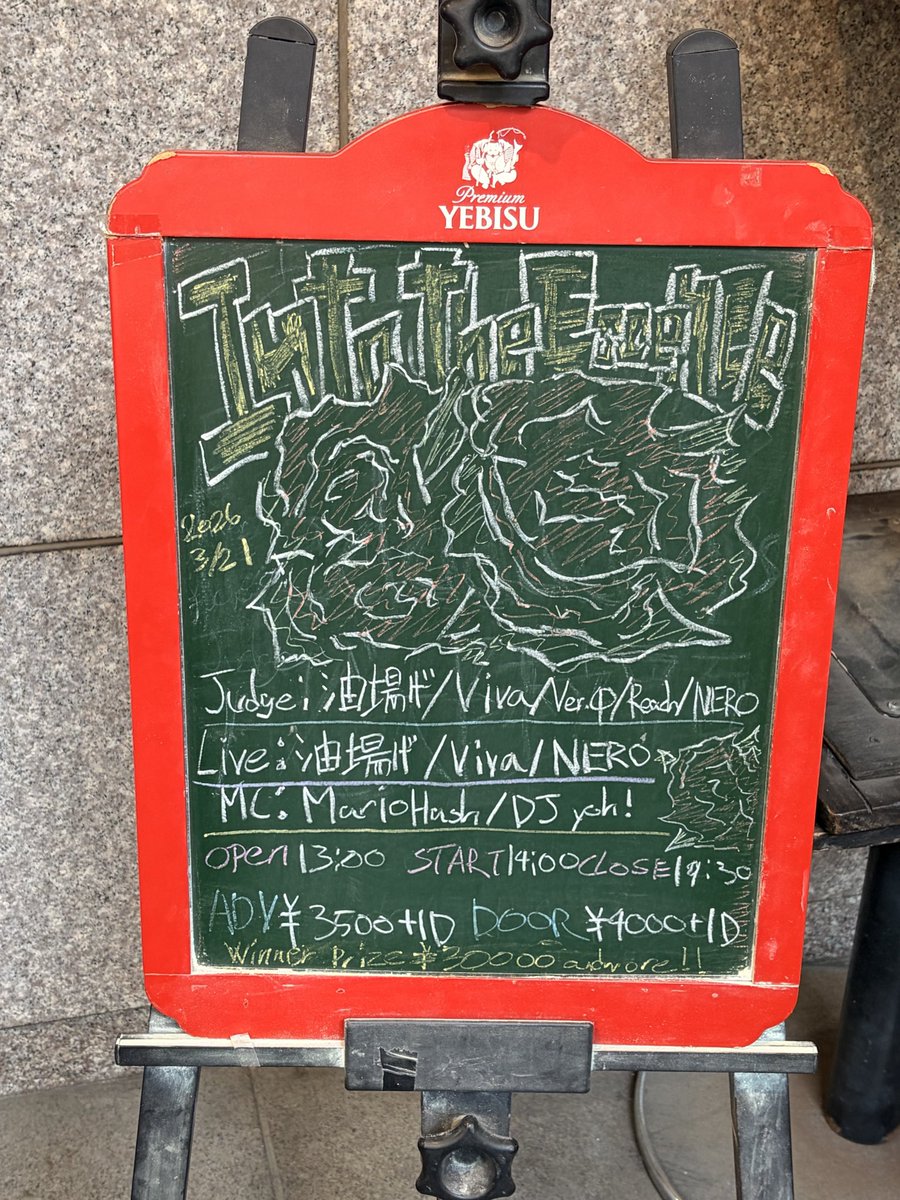 Premium
YEBISU
2026
3/21
Judge:油場げ/Viva/Ver.φ/Reach/NERO
Live:油場げ/Viva/NERO
MC:MarioHash/DJ yoh!
OPEN 13:00 START 14:00 CLOSE 19:30
ADV ¥3500+1D DOOR ¥4000+1D
Winner Prize ¥30000 and more!!